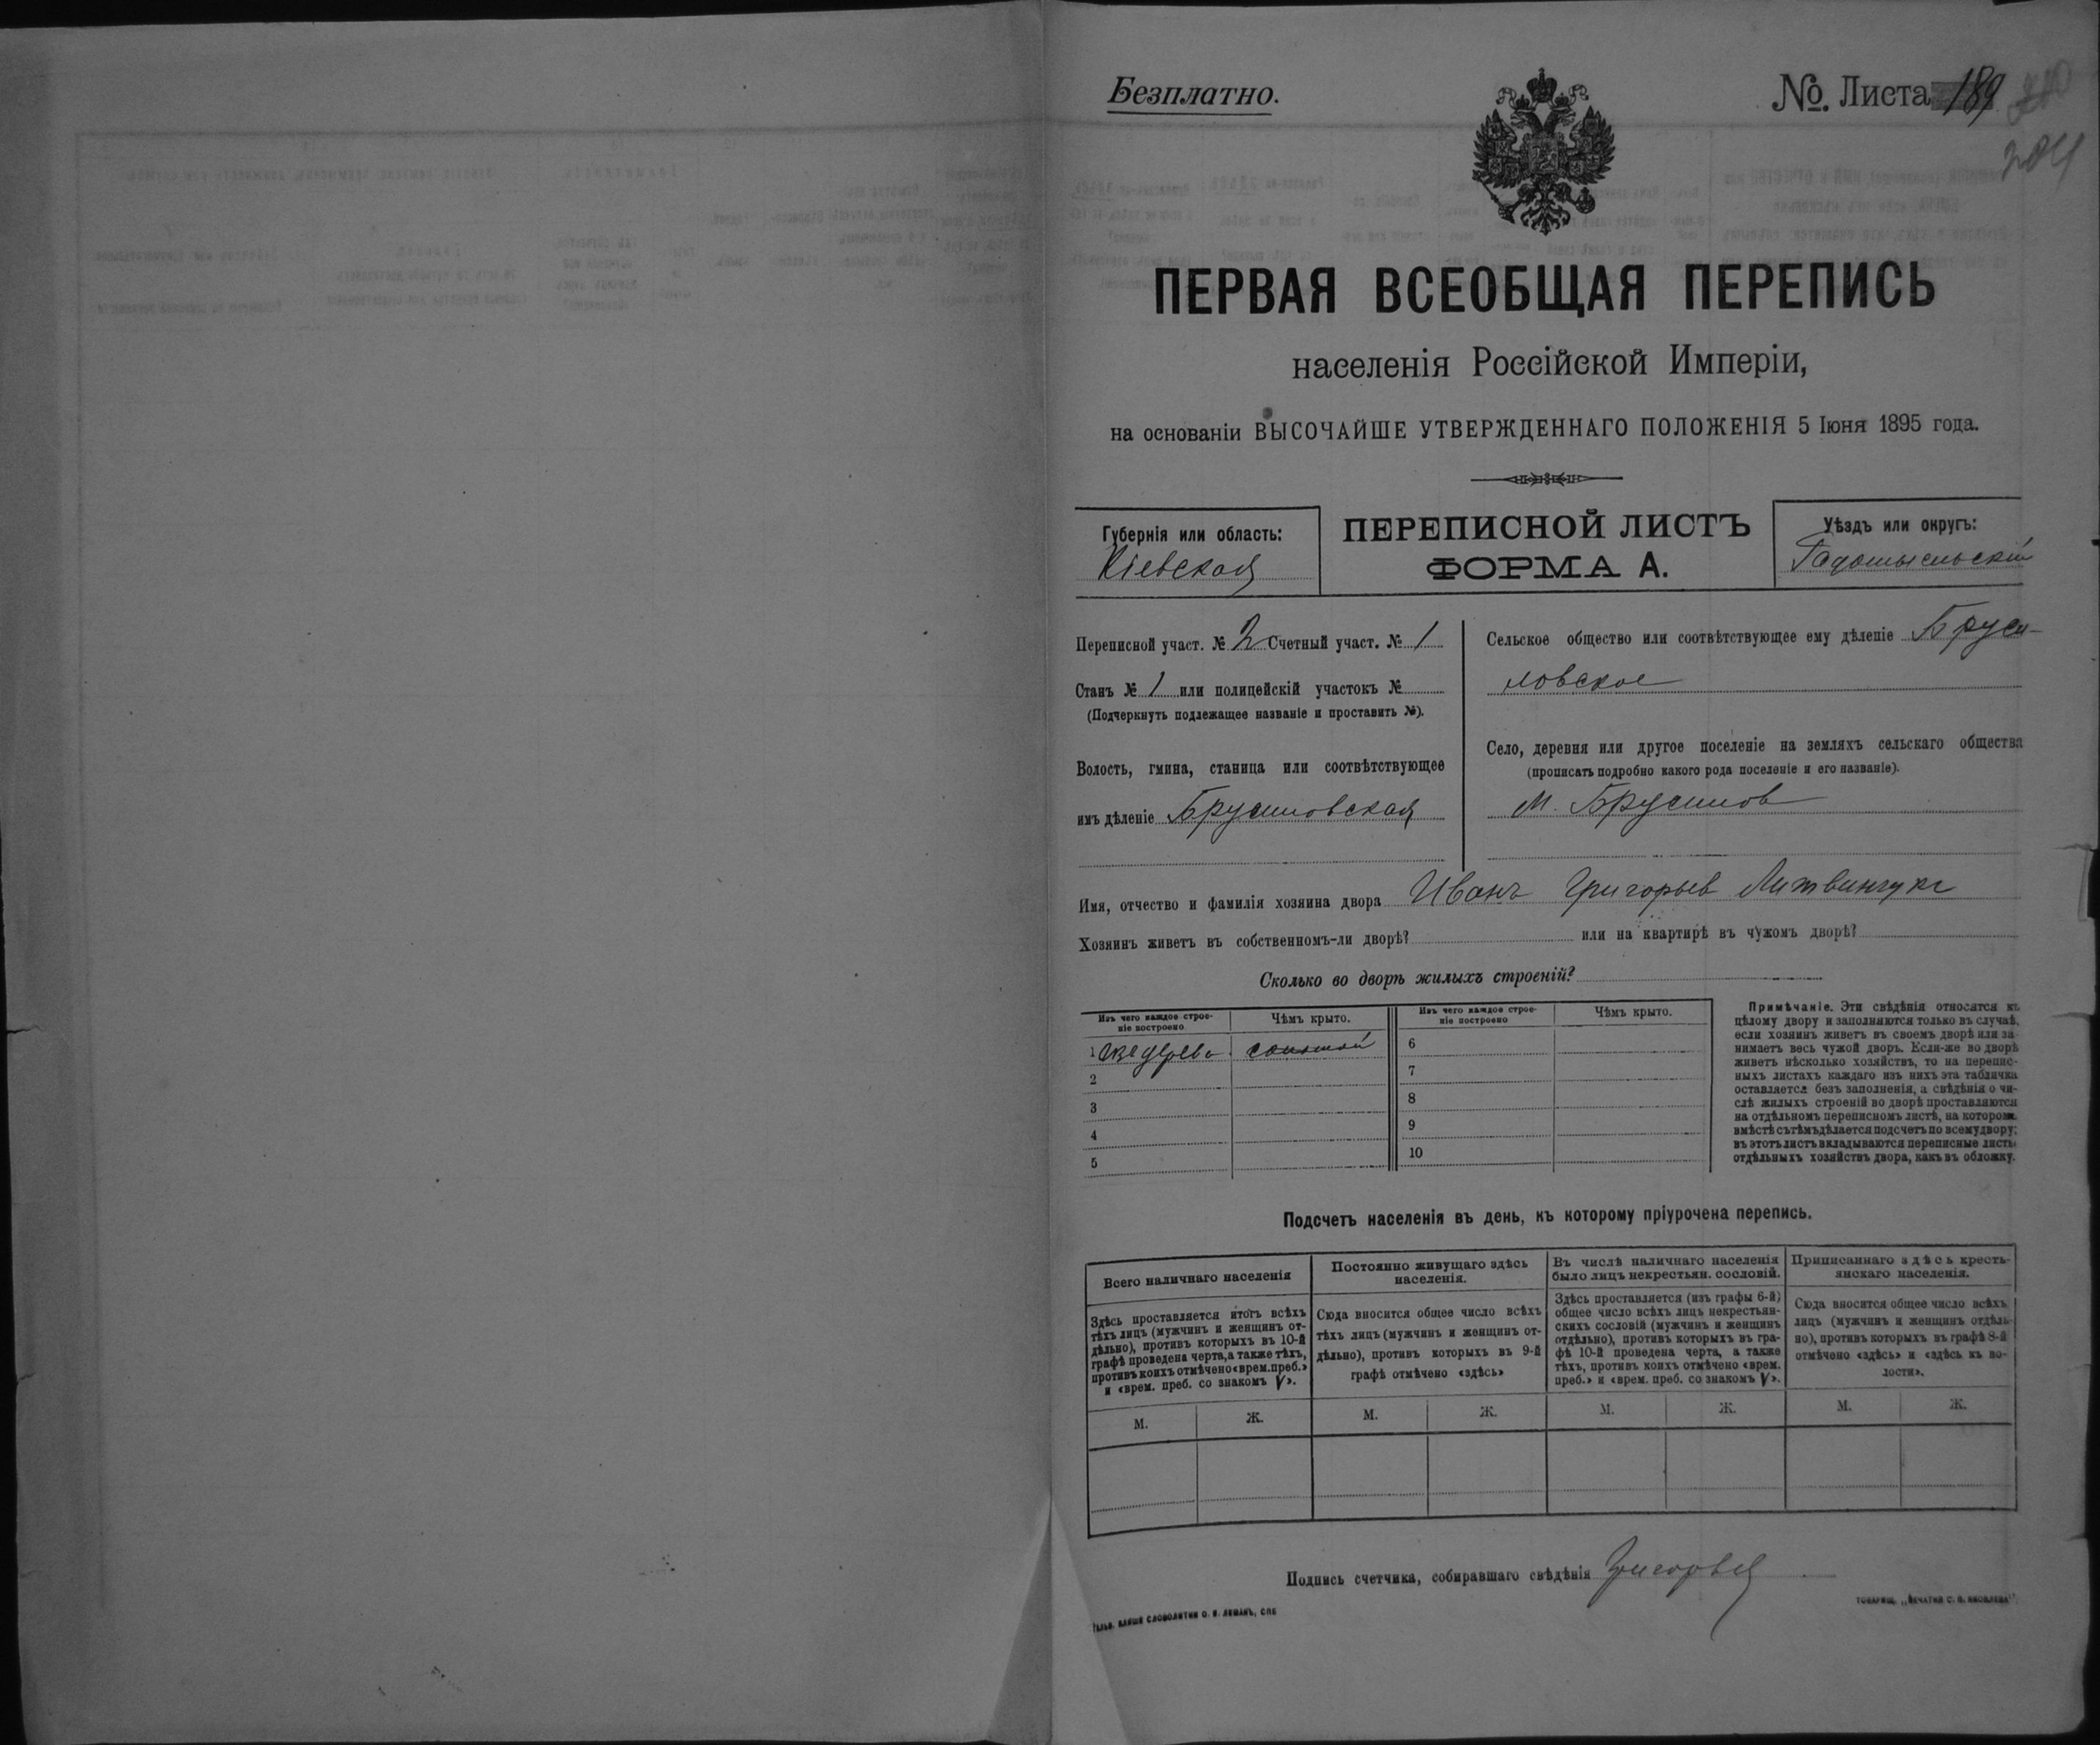 Безплатно.
№. Листа 189
204
ПЕРВАЯ ВСЕОБЩАЯ ПЕРЕПИСЬ
населенія Россійской Имперіи,
на основаніи ВЫСОЧАЙШЕ УТВЕРЖДЕННАГО ПОЛОЖЕНІЯ 5 Іюня 1895 года.
Губернія или область:
Кіевская
ПЕРЕПИСНОЙ ЛИСТЪ
ФОРМА А.
Уѣздъ или округъ:
Радомысльскій
Переписной участ. № 2 Счетный участ. № 1
Станъ № 1 или полицейскій участокъ №
(Подчеркнуть подлежащее названіе и проставить №).
Волость, гмина, станица или соотвѣтствующее
имъ дѣленіе Брусиловская
Сельское общество или соотвѣтствующее ему дѣленіе Бруси-
ловское
Село, деревня или другое поселеніе на земляхъ сельскаго общества
(прописать подробно какого рода поселеніе и его названіе).
М. Брусилов
Имя, отчество и фамилія хозяина двора Иванъ Григорьев Литвинчукъ
Хозяинъ живетъ въ собственномъ-ли дворѣ? или на квартирѣ въ чужомъ дворѣ?
Сколько во дворѣ жилыхъ строеній?
Изъ чего каждое строе-
ніе построено
Чѣмъ крыто.
Изъ чего каждое строе-
ніе построено
Чѣмъ крыто.
1 изъ дерева соломой
2
3
4
5
6
7
8
9
10
Примѣчаніе. Эти свѣдѣнія относятся къ
цѣлому двору и заполняются только въ случаѣ,
если хозяинъ живетъ въ своемъ дворѣ или за-
нимаетъ весь чужой дворъ. Если-же во дворѣ
живетъ нѣсколько хозяйствъ, то на перепис-
ныхъ листахъ каждаго изъ нихъ эта табличка
оставляется безъ заполненія, а свѣдѣнія о чи-
слѣ жилыхъ строеній во дворѣ проставляются
на отдѣльномъ переписномъ листѣ, на которомъ
вмѣстѣ съ тѣмъ дѣлается подсчетъ по всему двору;
въ этотъ листъ вкладываются переписные листы
отдѣльныхъ хозяйствъ двора, какъ въ обложку.
Подсчетъ населенія въ день, къ которому пріурочена перепись.
Всего наличнаго населенія
Здѣсь проставляется итогъ всѣхъ
тѣхъ лицъ (мужчинъ и женщинъ от-
дѣльно), противъ которыхъ въ 10-й
графѣ проведена черта, а также тѣхъ,
противъ коихъ отмѣчено «врем. преб.»
и «врем. преб. со знакомъ V».
Постоянно живущаго здѣсь
населенія.
Сюда вносится общее число всѣхъ
тѣхъ лицъ (мужчинъ и женщинъ от-
дѣльно), противъ которыхъ въ 9-й
графѣ отмѣчено «здѣсь»
Въ числѣ наличнаго населенія
было лицъ некрестьян. сословій.
Здѣсь проставляется (изъ графы 6-й)
общее число всѣхъ лицъ некрестьян-
скихъ сословій (мужчинъ и женщинъ
отдѣльно), противъ которыхъ въ гра-
фѣ 10-й проведена черта, а также
тѣхъ, противъ коихъ отмѣчено «врем.
преб.» и «врем. преб. со знакомъ V».
Приписаннаго здѣсь кресть-
янскаго населенія.
Сюда вносится общее число всѣхъ
лицъ (мужчинъ и женщинъ отдѣль-
но), противъ которыхъ въ графѣ 8-й
отмѣчено «здѣсь» и «здѣсь къ во-
лости».
М. Ж. М. Ж. М. Ж. М. Ж.
Подпись счетчика, собиравшаго свѣдѣнія
Гальв. клише словолитни О. И. Леманъ, СПБ
Товарищ. „Печатня С. П. Яковлева“.